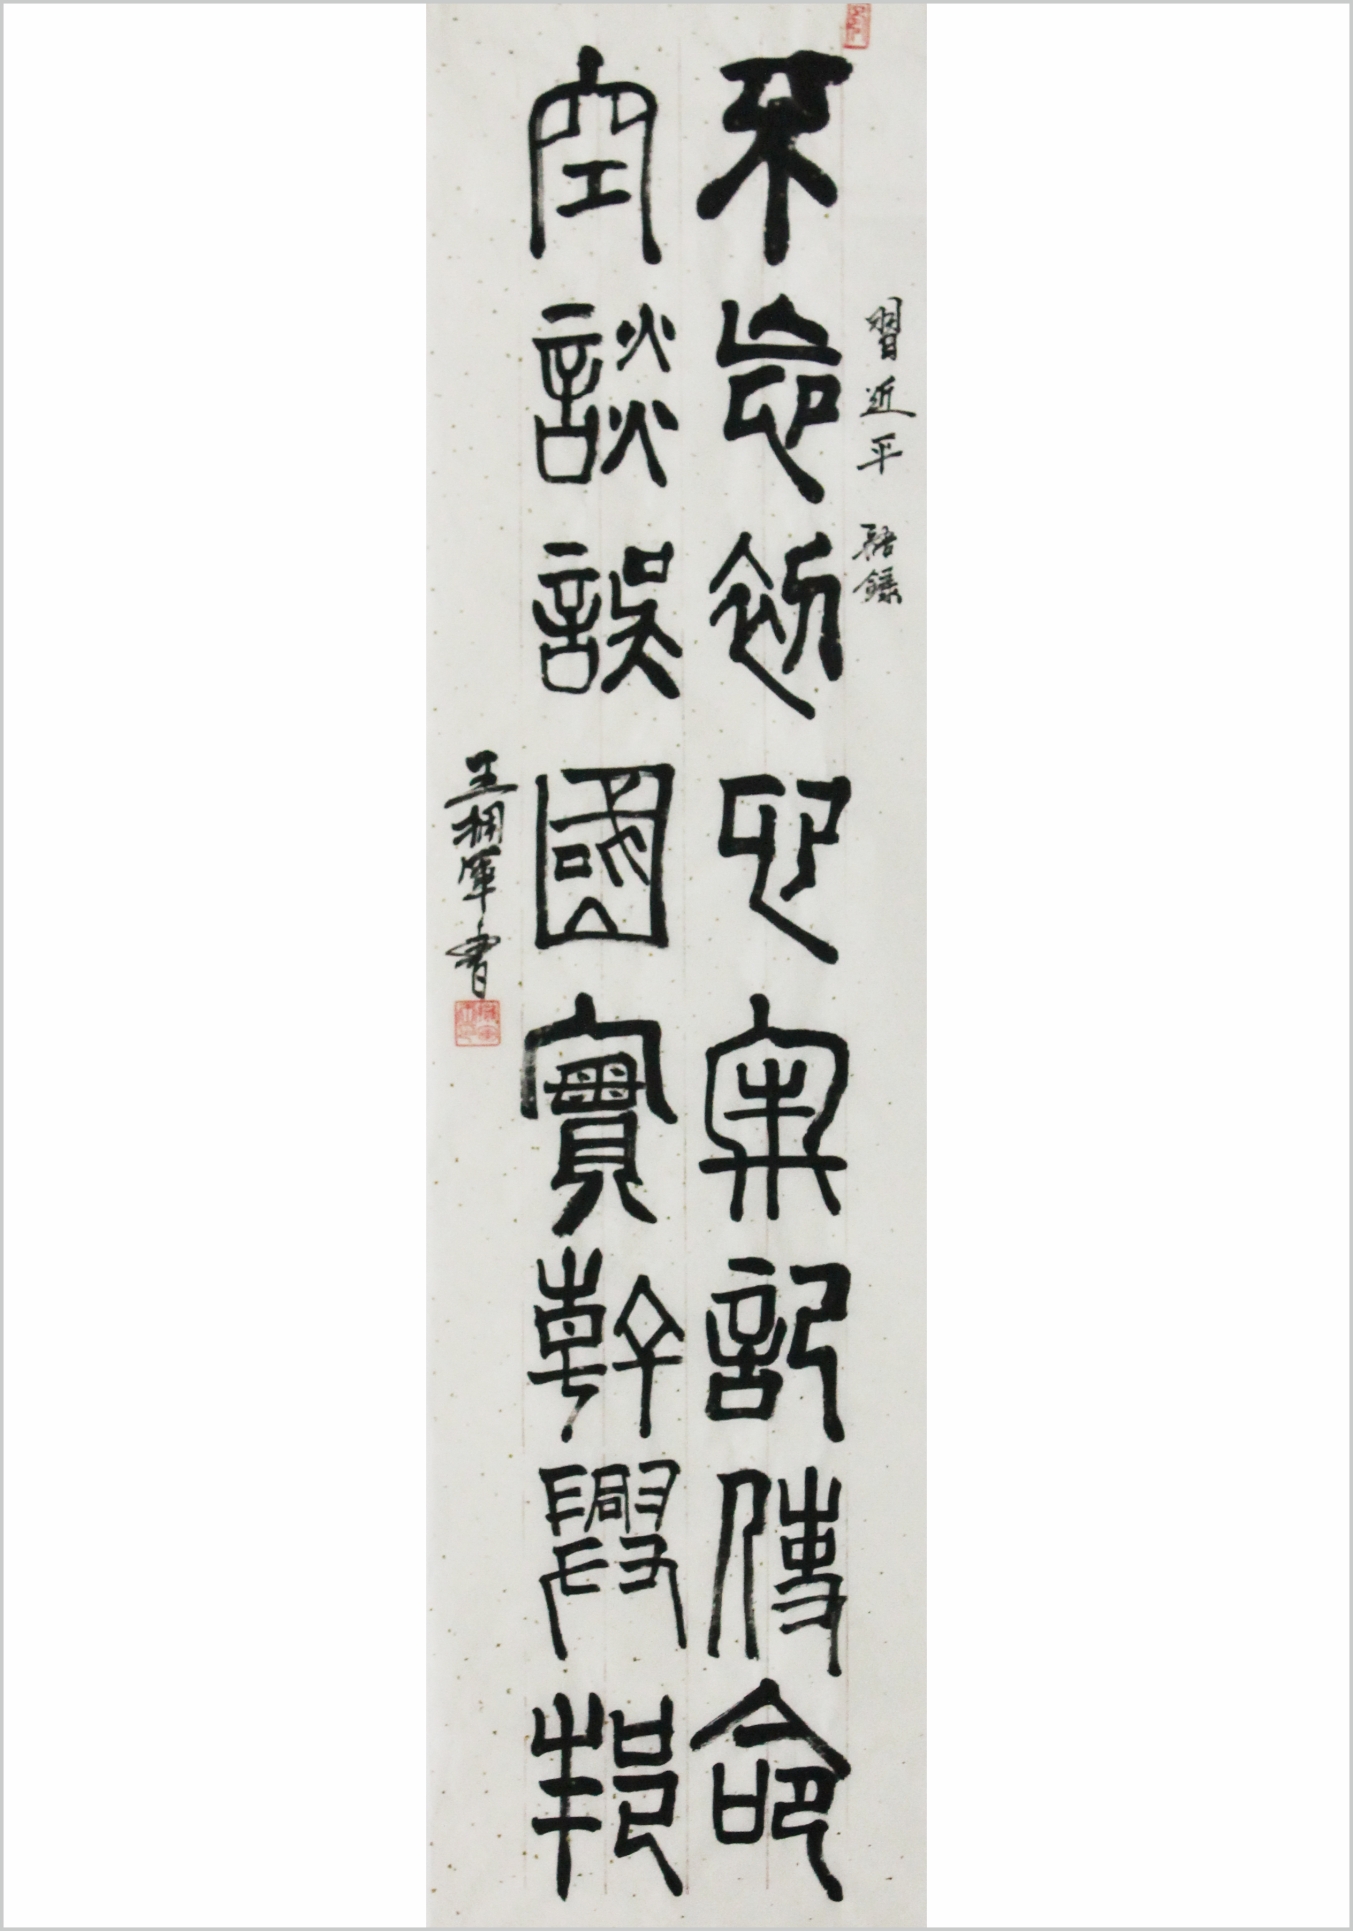 習近平 語錄
不忘初心牢記使命
空談誤國實幹興邦
王拥軍書